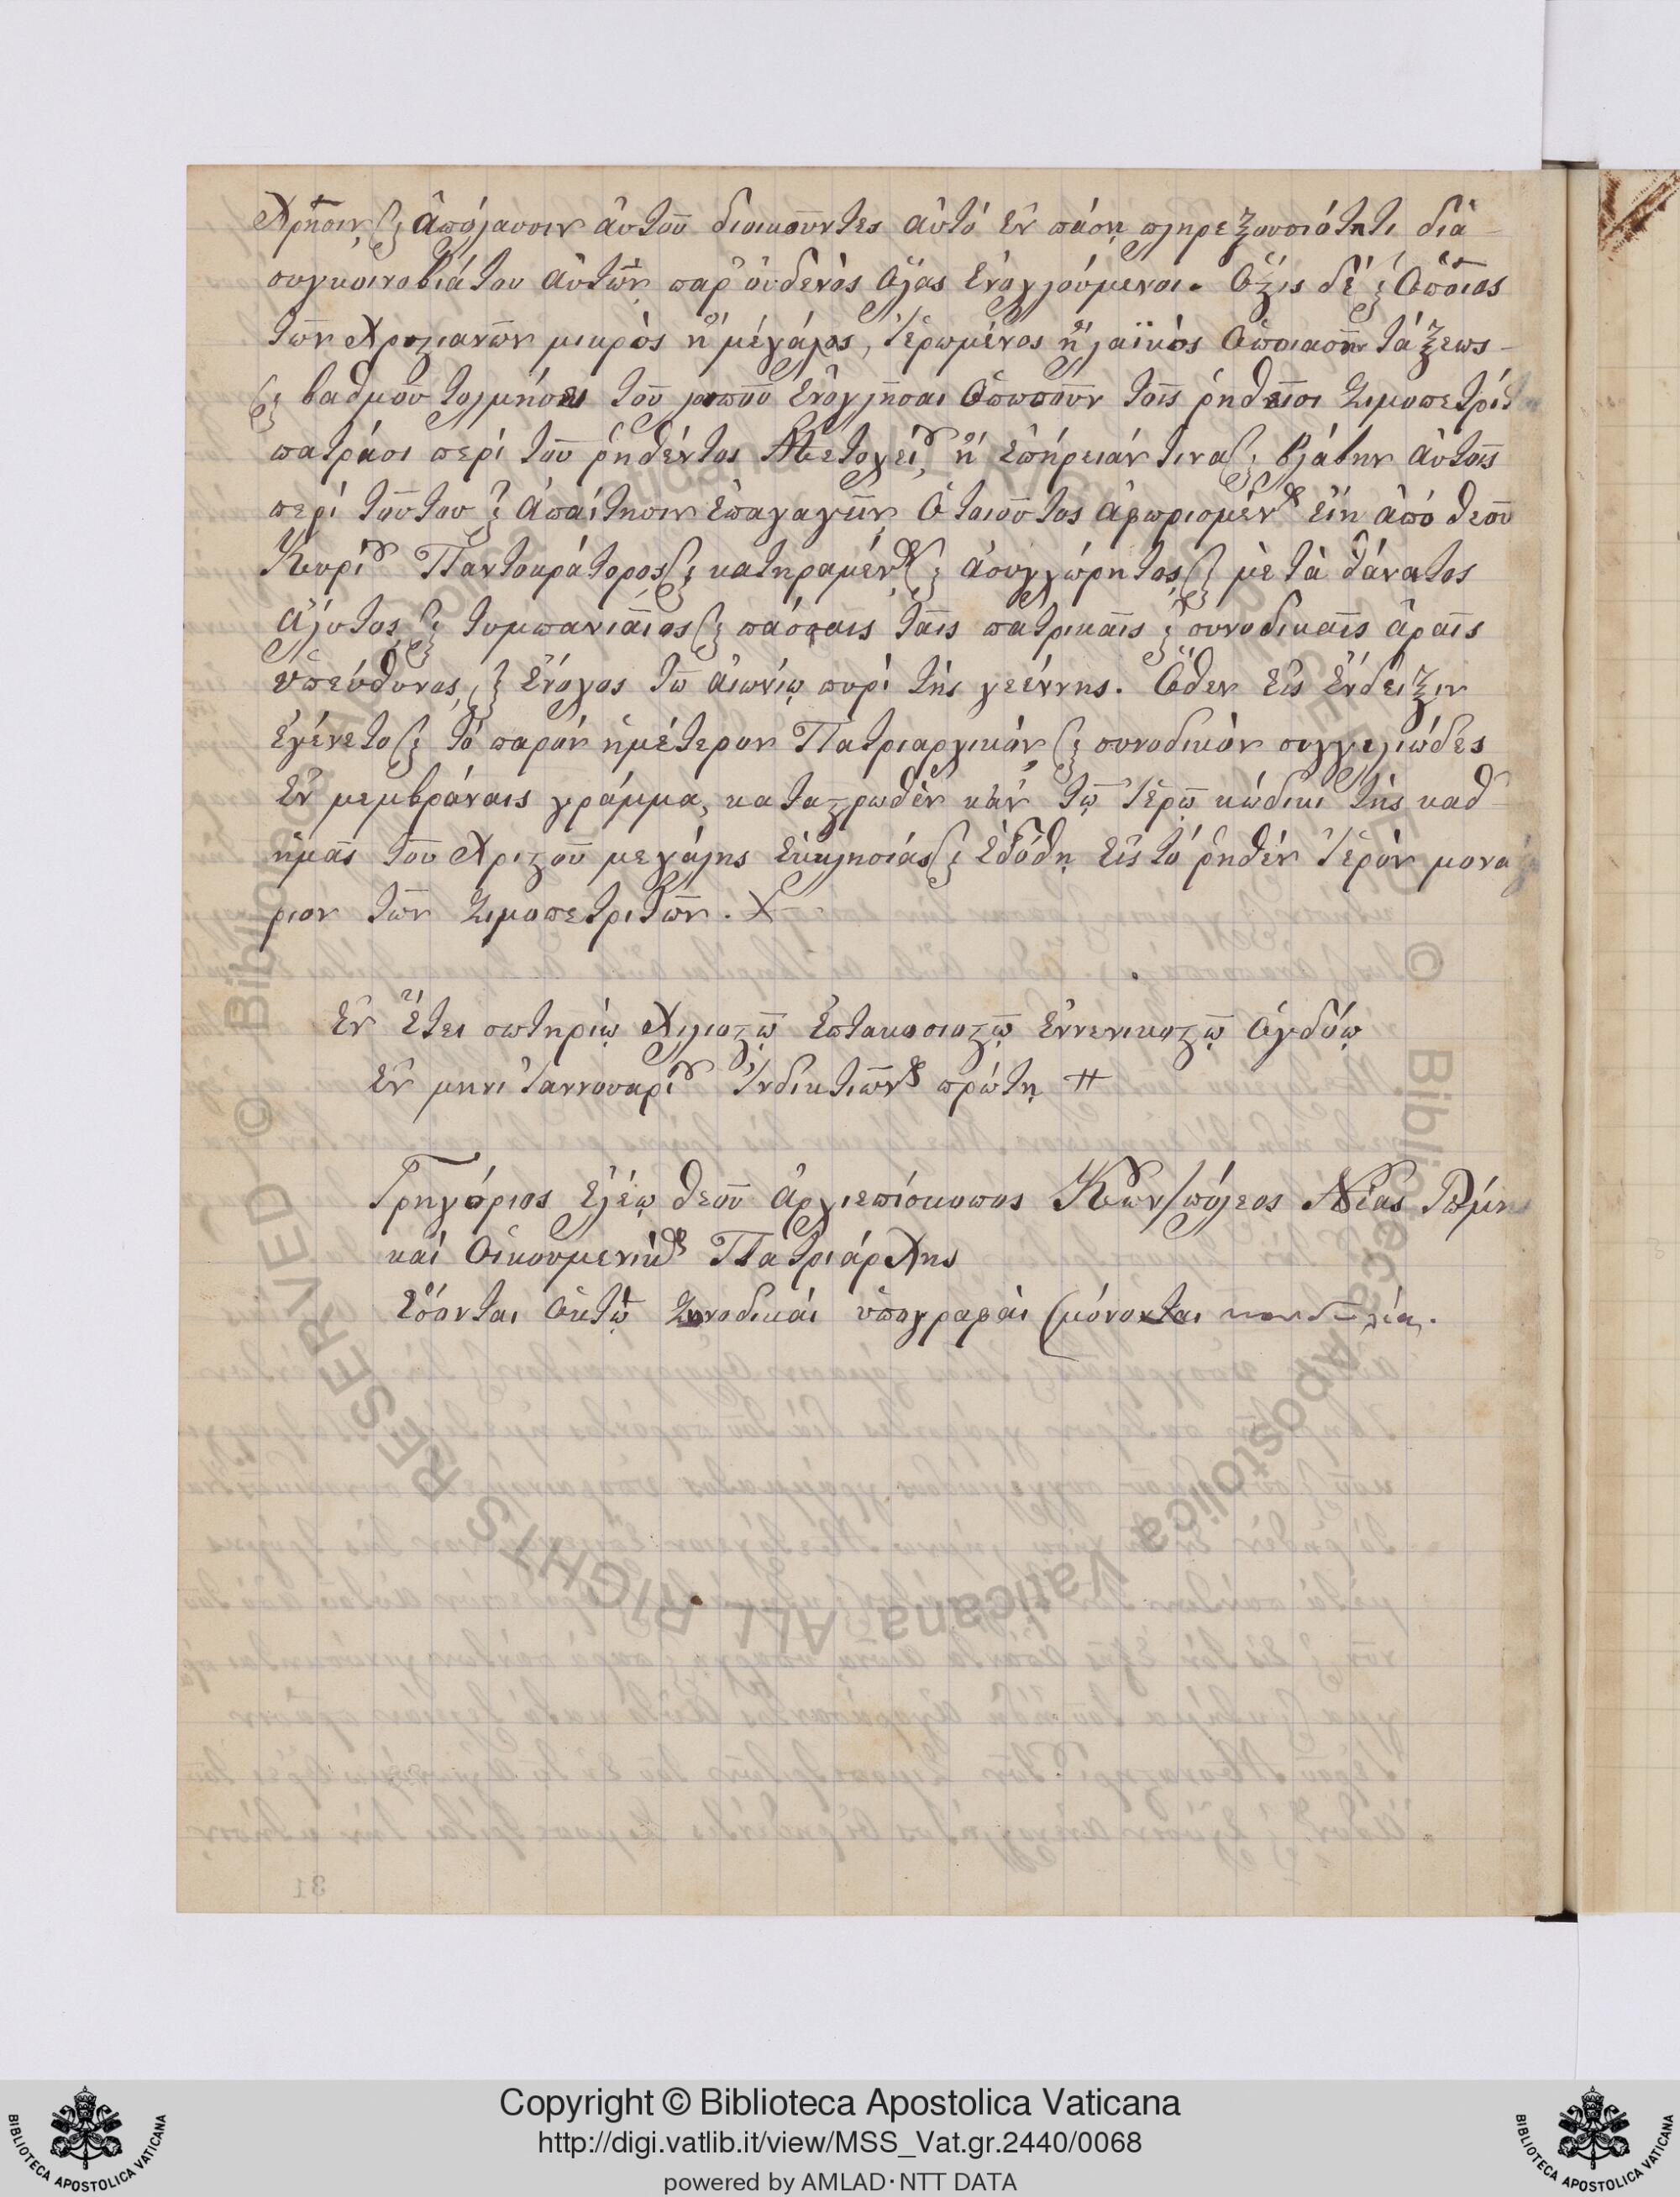 Χρῆσιν, ϗ ἀπόλαυσιν ἀυτοῦ διοικοῦντες ἀυτό ἐν πάσῃ πληρεξουσιότητι διὰ
συγκοινοβιάτου ἀυτῶν παρ' ὀυδενὸς ὅλος ἐνοχλούμενοι. ὅςις δὲ ϗ ὁποῖος
τῶν Χρηςιανῶν μικρὸς ἢ μέγάλος, ἱερωμένος ἢ λαϊκὸς ὁποιασοῦν τάξεως
ϗ βαθμοῦ τολμήσει τοῦ λοιποῦ ἐνοχλῆσαι ὁπωσοῦν τοῖς ῥηθεῖσι Σιμοπετρίταις
πατράσι περί τοῦ ῥηθέντος Μετοχείȣ, ἢ ἐπήρειάν τινα ϗ βλάβην ἀυτοῖς
περί τούτου ϗ ἀπαίτησιν ἐπαγαγεῖν ὁ τοιοῦτος ἀφωρισμένος εἴη ἀπό θεοῦ
Κυρίȣ Παντοκράτορος ϗ κατηραμένος ϗ ἀσυγχώρητος ϗ μὲτὰ θάνατος
ἄλυτος ϗ τυμπανιαῖος ϗ πάσσαις ταῖς πατρικαῖς ϗ συνοδικαῖς ἀραῖς
ὑπεύθυνος, ϗ ἔνοχος τῶ αἰωνίῳ πυρί τῆς γεέννης. ὅθεν εἰς ἔνδειξιν
ἐγένετο ϗ τό παρόν ἡμέτερον Πατριαρχικόν ϗ συνοδικόν συγγιλιώδες
ἐν μεμβράναις γράμμα, καταςρωθὲν κἀν τῷ ἱερῷ κώδικι τῆς καθ
ἡμᾶς τοῦ Χριςοῦ μεγάλης ἐκκλησιάς ϗ ἐδόθη εἰς τό ῥηθέν ἱερόν μονας
ριον τῶν Σιμοπετριτῶν.
Ἐν ἔτει σωτηρίῳ Χιλιοςῷ ἑπτακοσιοςῷ ἐννενικοςῷ ὀγδόῳ
ἐν μηνι Ἰαννουαρίȣ Ἰνδικτιῶνος πρώτῃ
Γρηγόριος ἐλέῳ θεοῦ ἀρχιεπίσκοπος Κων/πόλεος Νέας Ρώμης
καί Οἰκουμενικός Πατριάρχης
Ἕσονται ὀκτὼ Συνοδικάι ὑπογραφάι
31
Copyright © Biblioteca Apostolica Vaticana
http://digi.vatlib.it/view/MSS_Vat.gr.2440/0068
powered by AMLAD·NTT DATA